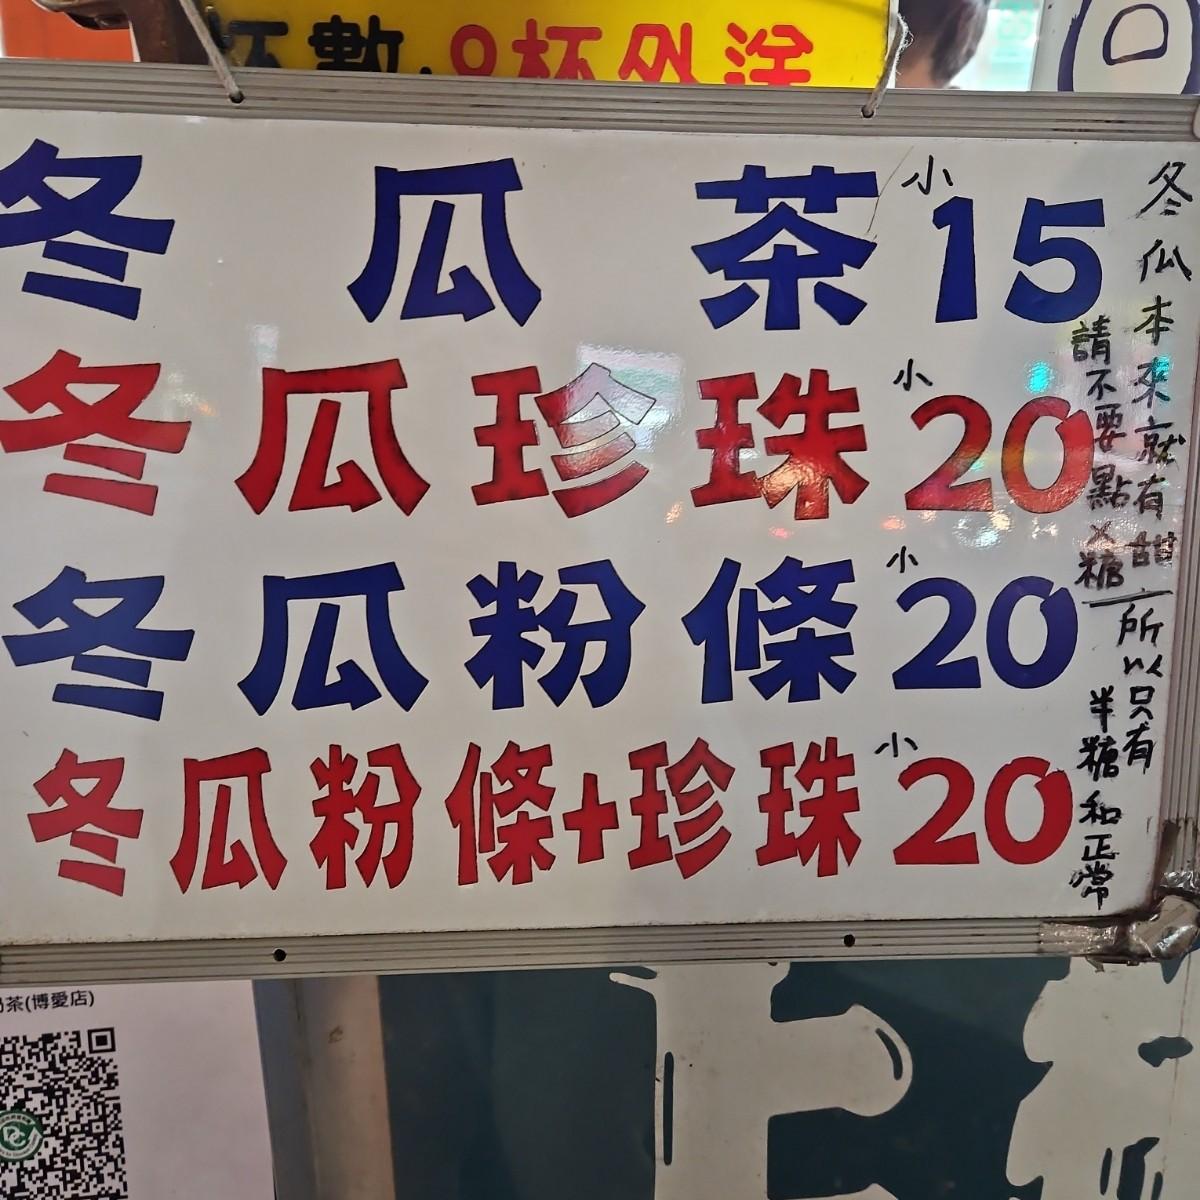 杯數:8杯外送
冬瓜茶 小15
冬瓜珍珠 小20
冬瓜粉條 小20
冬瓜粉條+珍珠 小20
冬瓜本來就有甜,所以只有
請不要點X糖 半糖和正常
奶茶(博愛店)